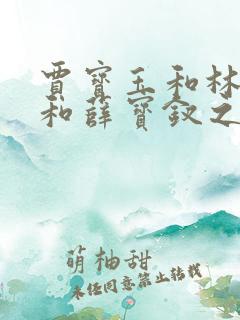 賈寶玉和林
和薛寶釵之
萌柚甜
未經同意禁止轉載